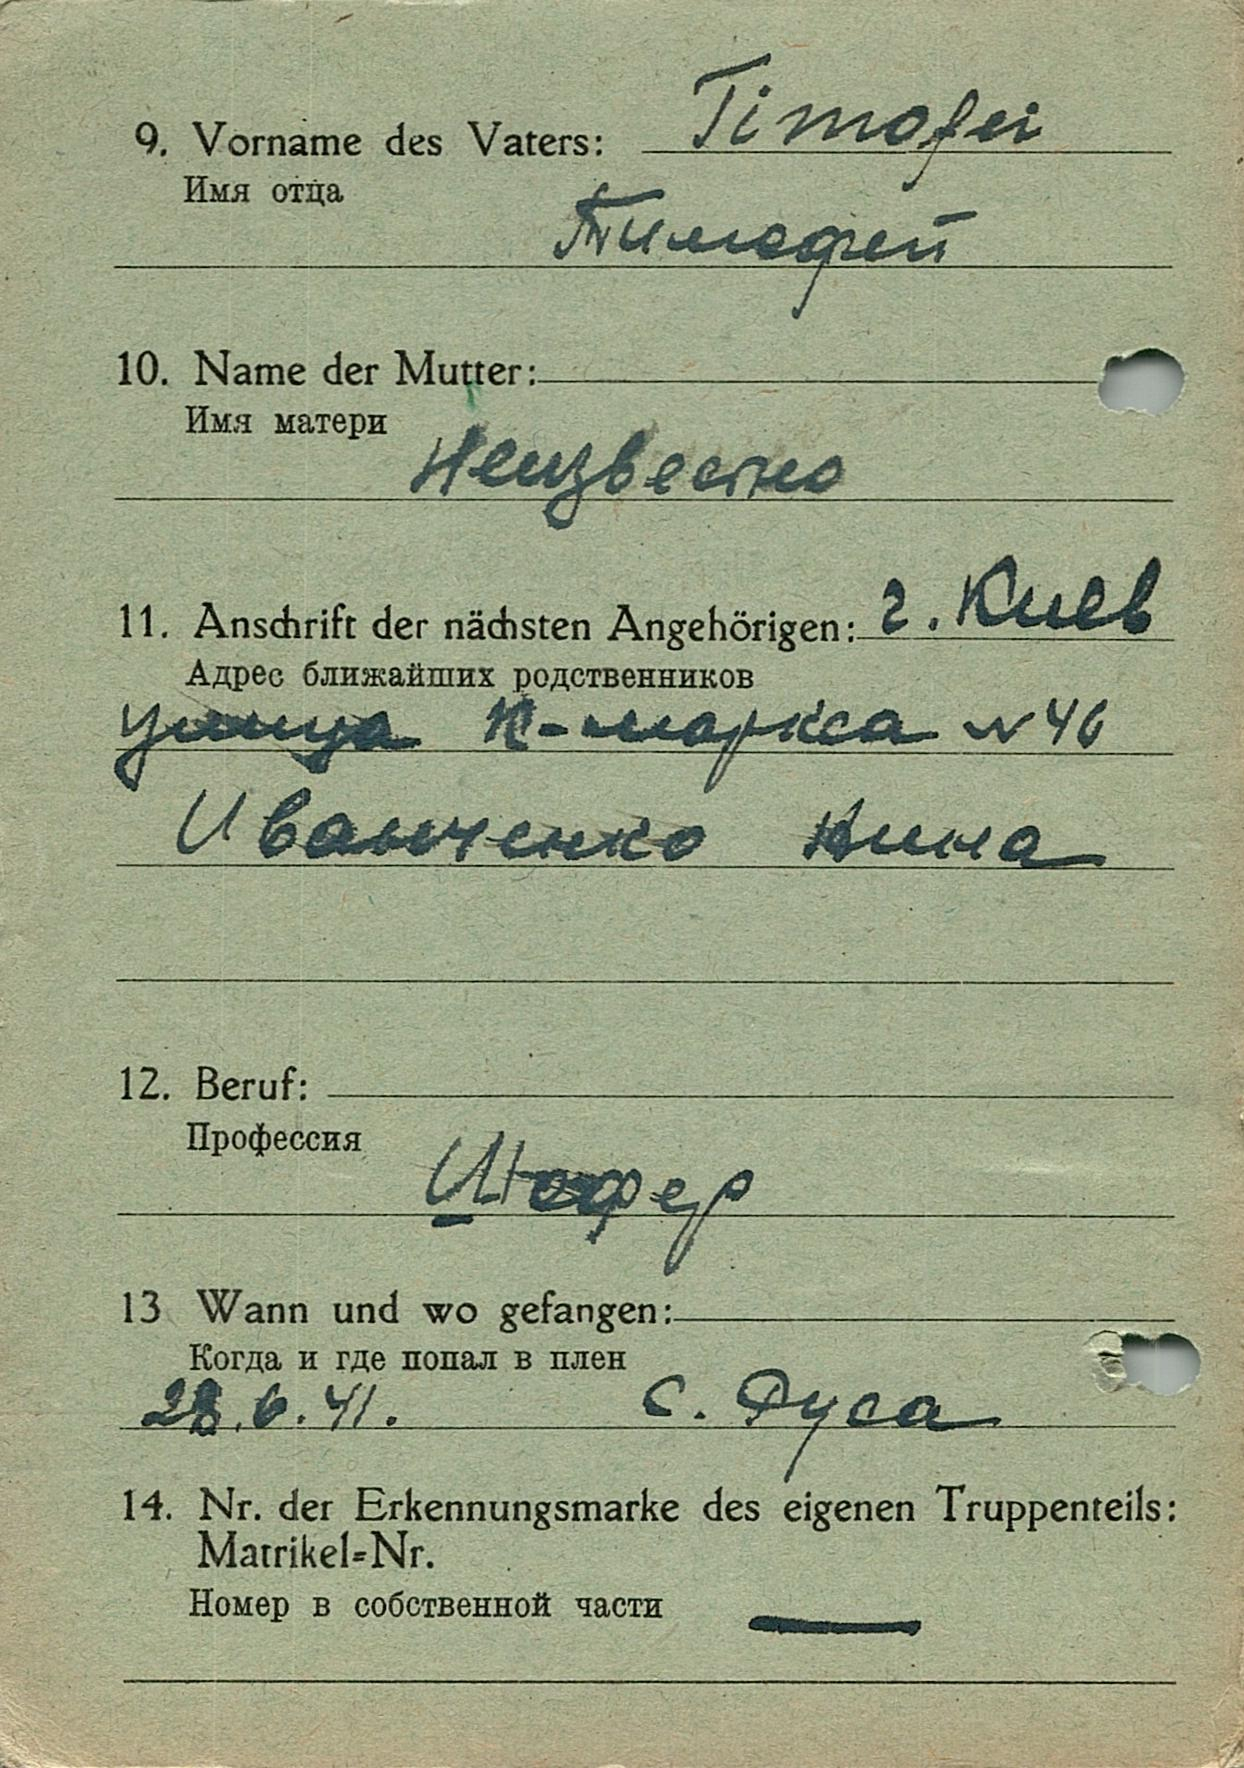 9. Vorname des Vaters: Timofei
Имя отца
Тимофей
10. Name der Mutter:
Имя матери
Неизвестно
11. Anschrift der nächsten Angehörigen: г. Киев
Адрес ближайших родственников
улица К-маркса № 46
Иванченко Нина
12. Beruf:
Профессия
Шофер
13 Wann und wo gefangen:
Когда и где попал в плен
28.6.41. с. Руса
14. Nr. der Erkennungsmarke des eigenen Truppenteils:
Matrikel-Nr.
Номер в собственной части